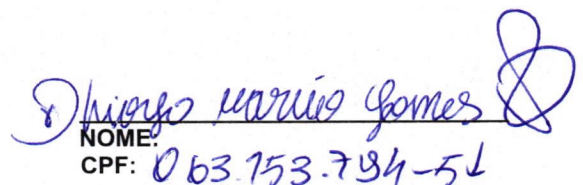 Dhiorgo Marcio Gomes
NOME:
CPF: 063.153.794-51